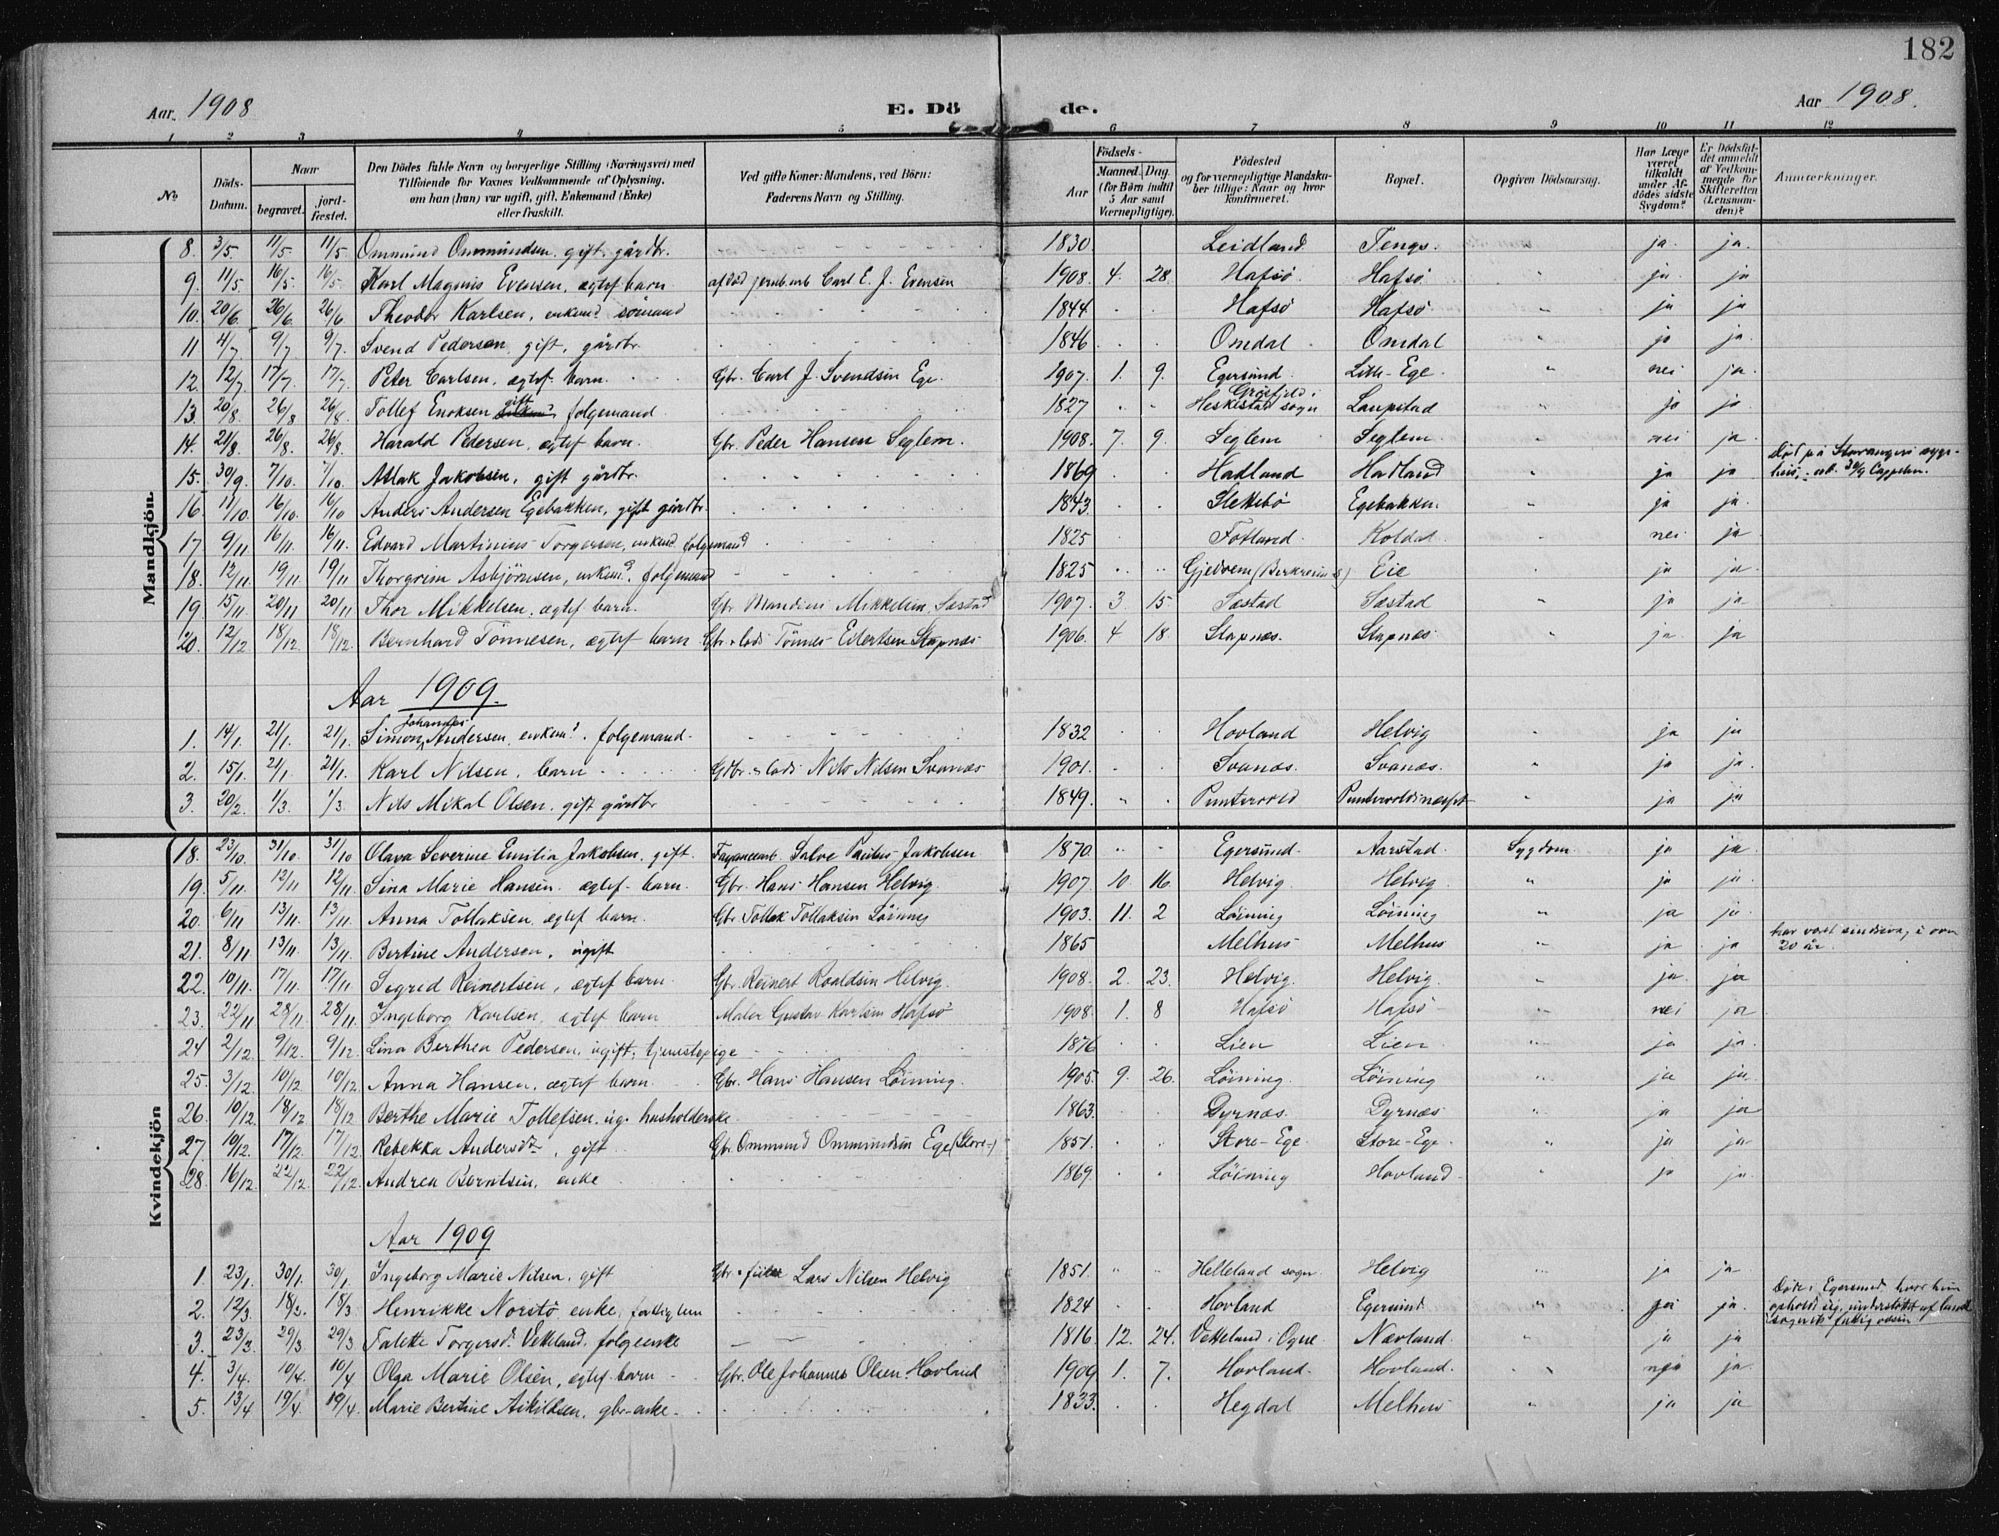 182
Aar 1908 E. Dö de. Aar 1908.
1 2 3 4 5 6 7 8 9 10 11 12
No. Döds-Datum. Naar begravet. jordfæstet. Den Dödes fulde Navn og borgerlige Stilling (Næringsvei) med Tilföiende for Voxnes Vedkommende af Oplysning, om han (hun) var ugift, gift, Enkemand (Enke) eller fraskilt. Ved gifte Koner: Mandens, ved Börn: Faderens Navn og Stilling. Födsels- Aar Maaned. Dag. (for Börn indtil 5 Aar samt Værnepligtige). Födested og for værnepligtige Mandskaber tillige: Naar og hvor konfirmeret. Bopæl. Opgiven Dödsaarsag. Har Læge været tilkaldt under Afdödes sidste Sygdom? Er Dödsfaldet anmeldt af Vedkommende for Skifteretten (Lensmanden)? Anmærkninger.
Mandkjön.
8. 3/5 11/5 11/5 Ommund Ommundsen. gift. gårdbr. 1830. Leidland Tengs. ja. ja.
9. 11/5 16/5 16/5 Karl Magnus Evensen, ægtef. barn afdød jernb.arb. Carl E. J. Evensen 1908. 4. 28. Hafsø Hafsø ja ja
10. 20/6. 26/6 26/6 Theodor Karlsen, enkemd. sømand 1844 Hafsø Hafsø ja ja
11 4/7 9/7 9/7. Svend Pedersen, gift, gårdbr. 1846 Omdal Omdal ja ja.
12. 12/7 17/7. 17/7 Peter Carlsen, ægtef. barn. Gbr. Carl J. Svendsen Ege. 1907. 1. 9. Egersund Litle-Ege " nei ja
13. 20/8. 26/8 26/8. Tollef Enoksen gift folgemand. 1827 Grøsfjeld i Heskestad sogn Laupstad ja ja.
14. 21/8. 26/8. 26/8. Harald Pedersen, ægtef. barn. Gbr. Peder Hansen Seglem. 1908. 7. 9. Seglem Seglem. " nei ja
15. 30/9 7/10. 7/10. Atlak Jakobsen, gift gårdbr. 1869 Hadland Hadland " ja ja Død på Stavangers syge-hus, 30/9 Cappelen.
16. 11/10. 16/10 16/10 Anders Andersen Egebakken, gift gårdbr. 1843. Slettebø Egebakken. " ja ja
17 9/11. 16/11. 16/11. Edvard Martinius Torgersen, enkemd folgemand 1825 Fotland. Koldal. nei ja
18. 12/11. 19/11 19/11 Thorgrim Asbjørnsen, enkemd. folgemand 1825 Gjedrem (Berkreim S) Eie ja ja
19. 15/11. 20/11 20/11 Thor Mikkelsen, ægtef. barn. Gbr. Mandius Mikkelsen Sæstad 1907. 3 15. Sæstad Sæstad " ja ja
20. 12/12 18/12. 18/12. Bernhard Tönnesen, ægtef. barn Gbr. & lods Tønnes Edertsen Stapnæs 1906. 4 18. Stapnæs. Stapnæs. " ja. ja
Aar 1909.
1. 14/1. 21/1. 21/1. Simon Johannes Andersen, enkemd. folgemand 1832 Hovland Helvig " ja ja
2. 15/1. 21/1. 21/1. Karl Nilsen, barn Gdbr. & lods Nils Nilsen Svanæs 1901. Svanæs. Svanæs. " ja ja.
3. 20/2. 1/3. 1/3. Nils Mikal Olsen, gift gårdbr 1849. Puntervold ja ja
Kvindekjön
18. 23/10. 31/10 31/10 Olava Severine Emilia Jakobsen, gift. Fayancearb. Salve Paulus Jakobsen 1870. Egersund. Aarstad. Sygdom ja ja
19. 5/11. 12/11 12/11 Sina Marie Hansen. ægtef. barn. Gbr. Hans Hansen Helvig. 1907. 10 16. Helvig. Helvig. " ja ja.
20. 6/11 13/11. 13/11. Anna Tollaksen, ægtef. barn. Gbr. Tollak Tollaksen Løining 1903. 11. 2 Løining Løining " ja ja
21. 8/11 13/11. 13/11. Bertine Andersen, ugift 1865 Melhus Melhus " ja ja har vært sindssvag i over 20 år.
22. 10/11. 17/11. 17/11. Sigrid Reinertsen, ægtef. barn. Gbr. Reinert Roaldsen Helvig. 1908. 2. 23. Helvig. Helvig. " ja. ja
23. 22/11 28/11. 28/11. Ingeborg Karlsen. ægtef. barn Maler Gustav Karlsen Hafsø 1908. 1. 8 Hafsø Hafsø " nei ja
24 2/12. 9/12. 9/12. Lina Berthea Pedersen, ugift, tjenestepige 1876 Lien Lien. " ja ja.
25. 3/12 10/12 10/12. Anna Hansen, ægtef. barn. Gbr. Hans Hansen Løining. 1905. 9. 26. Løining. Løining " ja ja.
26. 10/12. 18/12 18/12 Berthe Marie Tollefsen, ug. husholderske 1863. Dyrnæs. Dyrnæs " ja ja
27. 10/12. 17/12. 17/12. Rebekka Andersdr., gift Gbr. Ommund Ommundsen Ege (Store-) 1851. Store-Ege Store-Ege. " ja ja
28. 16/12. 22/12. 22/12. Andrea Berntsen, enke 1869. Løining Hovland. ja ja.
Aar 1909
1. 23/1. 30/1. 30/1. Ingeborg Marie Nilsen. gift Gbr. & fisker Lars Nilsen Helvig 1851. Helleland sogn. Helvig ja ja
2. 12/3. 18/3. 18/3. Henrikke Norstø enke, fattiglem 1824 Hovland Egersund " ja ja. Død i Egersund, hvor hun opholdt sig, understøttet af lands sogns fattigvæsen
3. 23/3. 29/3 29/3 Talette Torgersd. Vetteland, folgeenke 1816. 12. 24. Vetteland i Ogne Nævland. ja ja
4. 3/4. 10/4. 10/4 Olga Marie Olsen, ægtef. barn Gbr. Ole Johannes Olsen Hovland 1909 1. 7. Hovland. Hovland. " ja.
5. 13/4 19/4. 19/4. Marie Bertine Askildsen, gbr-enke. 1833. Hegdal Melhus " ja ja